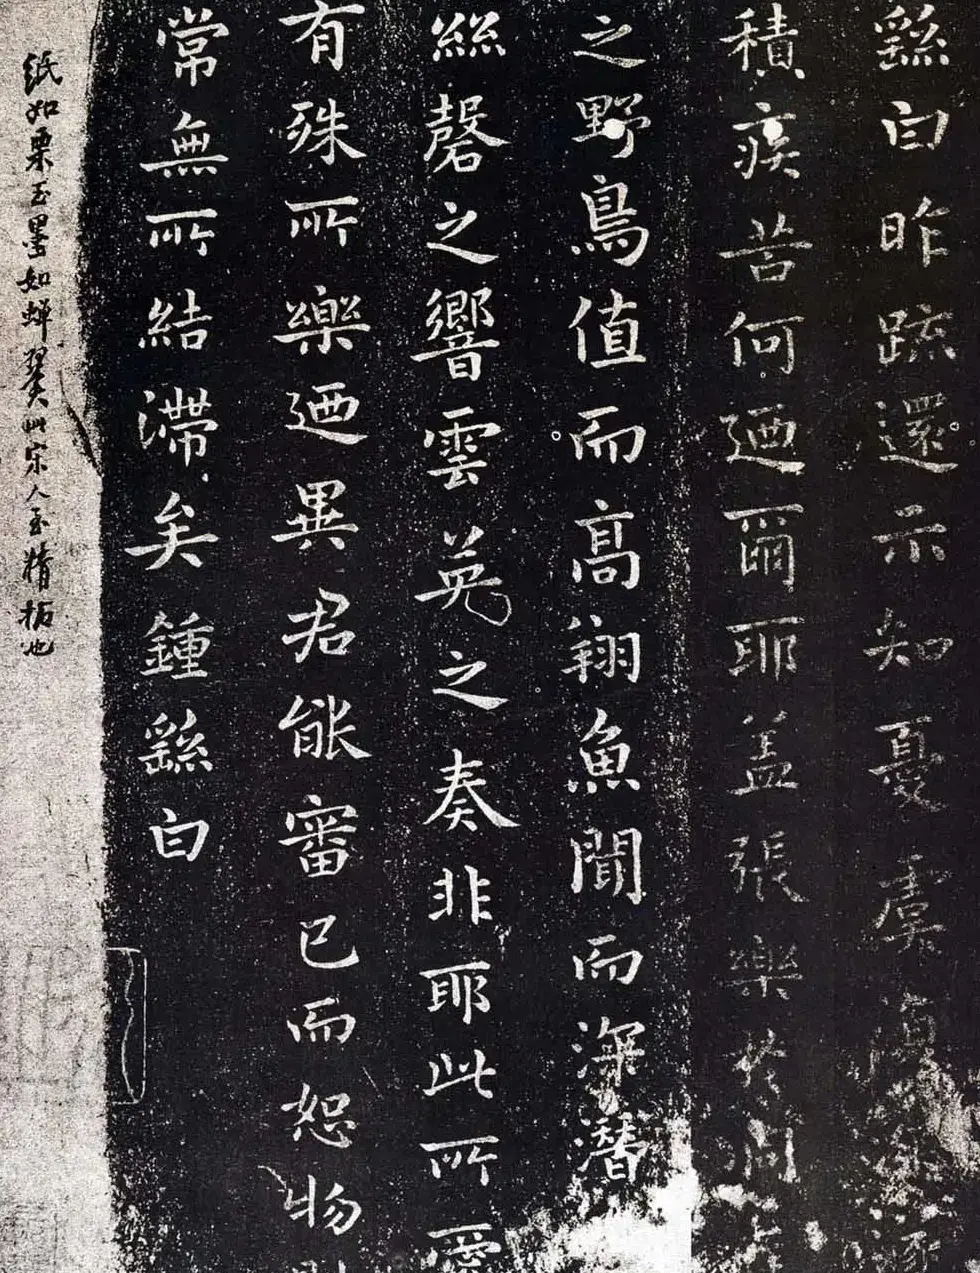 繇白昨疏還示知憂虞復深遂
積疾苦何迺爾耶盖張樂於洞
之野鳥值而高翔魚聞而深潛
絲磬之響雲英之奏非耶此所愛
有殊所樂迺異君能審己而恕物則
常無所結滯矣鍾繇白
紙如栗玉墨如蟬翼此宋人至精拓也